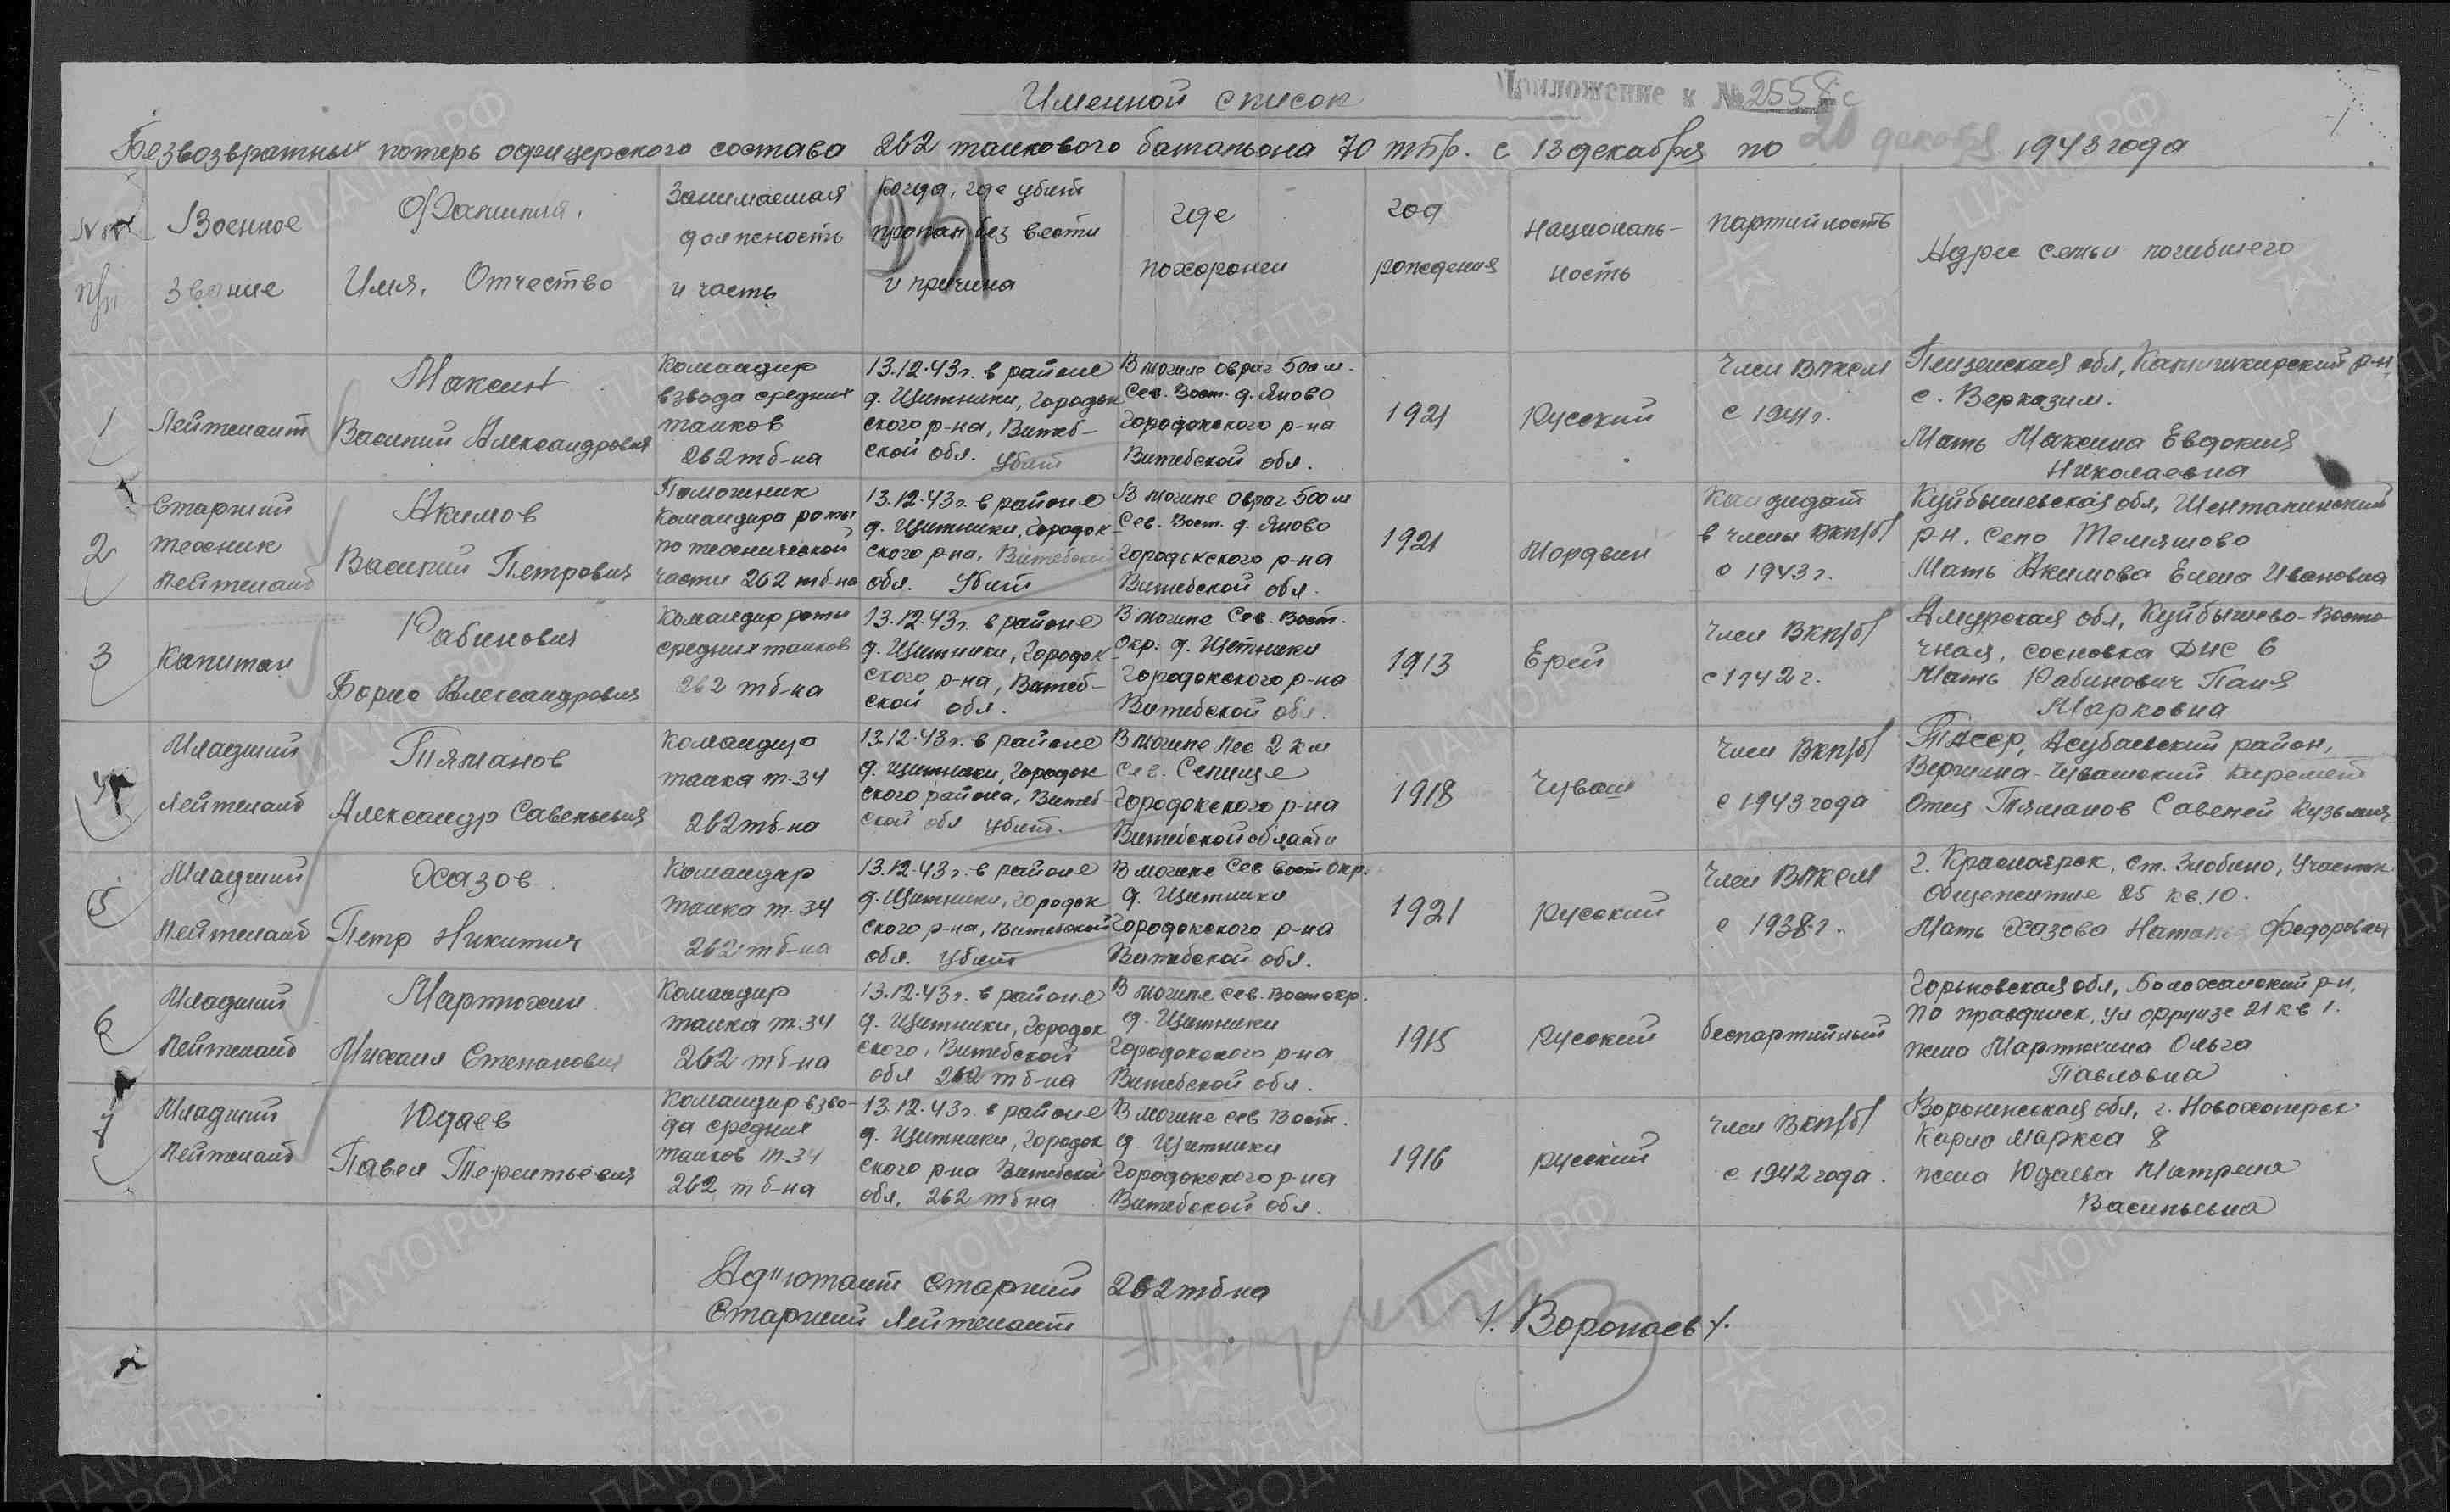 Именной список
Приложение к № 2558с
Безвозвратных потерь офицерского состава 262 танкового батальона 70 тбр. с 13 декабря по 20 декабря 1943 года
№№
п/п
Военное
звание
Фамилия,
Имя, Отчество
Занимаемая
должность
и часть
Когда, где убит
пропал без вести
и причина
Где
похоронен
Год
рождения
Националь-
ность
партийность
Адрес семьи погибшего
1
Лейтенант
Максин
Василий Александрович
Командир
взвода средних
танков
262 тб-на
13.12.43г. в районе
д. Щитники, Городок
ского р-на, Витеб-
ской обл. Убит
В могиле овраг 500 м.
Сев. Вост. д. Яново
Городокского р-на
Витебской обл.
1921
Русский
Член ВЛКСМ
с 1941г.
Пензенская обл, Камишкирский р-н
с. Верхазим.
Мать Максина Евдокия
Николаевна
2
Старший
техник
Лейтенант
Акимов
Василий Петрович
Помощник
Командира роты
по технической
части 262 тб-на
13.12.43г. в районе
д. Щитники, Городок-
ского р-на, Витебской
обл. Убит
В могиле овраг 500 м
Сев. Вост. д. Яново
Городокского р-на
Витебской обл.
1921
Мордвин
Кандидат
в члены ВКП/б/
с 1943г.
Куйбышевская обл, Шенталинский
р-н, село Темяшово
Мать Акимова Елена Ивановна
3
Капитан
Рабинович
Борис Александрович
Командир роты
средних танков
262 тб-на
13.12.43г. в районе
д. Щитники, Городок-
ского р-на, Витеб-
ской обл.
В могиле Сев. Вост.
окр. д. Щетники
Городокского р-на
Витебской обл.
1913
Ерей
Член ВКП/б/
с 1942г.
Амурская обл, Куйбышево-Восто-
чная, сосновка ДНС 6
Мать Рабинович Паня
Марковна
4
Младший
Лейтенант
Тяманов
Александр Савельевич
Командир
танка т-34
262 тб-на
13.12.43г. в районе
д. Щитники, Городок
ского района, Витеб-
ской обл убит.
В могиле лес 2 км
сев. Селище
Городокского р-на
Витебской области
1918
Чуваш
Член ВКП/б/
с 1943 года
ТАССР, Аксубаевский район,
Вершина-Чувашский Киремет
Отец Тяманов Савелей Кузьмич
5
Младший
Лейтенант
Хазов
Петр Никитич
Командир
танка т-34
262 тб-на
13.12.43г. в районе
д. Щитники, Городок
ского р-на, Витебской
обл. Убит
В могиле Сев вост окр.
д. Щитники
Городокского р-на
Витебской обл.
1921
Русский
Член ВЛКСМ
с 1938г.
г. Красноярск, ст. Злобино, Участок
Общежитие 25 кв. 10.
Мать Хазова Федоровна
6
Младший
Лейтенант
Мартюхин
Михаил Степанович
Командир
танка т-34
262 тб-на
13.12.43г. в районе
д. Щитники, Городок
ского, Витебской
обл 262 тб-на
В могиле сев. Вост окр.
д. Щитники
Городокского р-на
Витебской обл.
1915
Русский
беспартийный
Горьковская обл, Болоханский р-н,
по правдинск, ул Фрунзе 21 кв 1.
жена Мартюхина Ольга
Павловна
7
Младший
Лейтенант
Юдаев
Павел Терентьевич
Командир взво-
да средних
танков т-34
262 тб-на
13.12.43г. в районе
д. Щитники, Городок
ского р-на Витебской
обл. 262 тб на
В могиле сев Вост.
д. Щитники
Городокского р-на
Витебской обл.
1916
русский
член ВКП/б/
с 1942 года.
Воронежская обл, г. Новохоперск
Карла Маркса 8
жена Юдаева Матрена
Васильевна
Ад"ютант Старший 262 тб-на
Старший Лейтенант
/. Воропаев /.